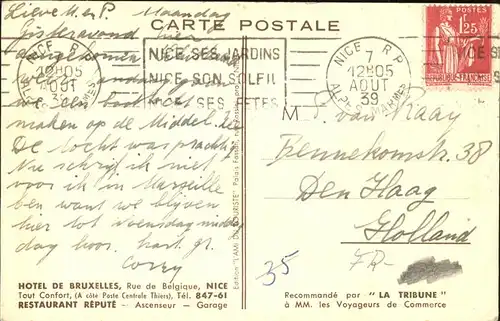 CARTE POSTALE
Lieve M. en P. Maandag
gisteravond hier
aangekomen
we een boot
maken op de Middel. Zee
De tocht was prachtig
Nu schrijf ik niet
voor ik in Marseille
ben want we blijven
hier tot Woensdag middag
dag hoor. hart. gr.
Corry
NICE R.P.
12H05
AOUT
39
ALPES MARITIMES
NICE SES JARDINS
NICE SON SOLEIL
NICE SES FETES
NICE R.P.
7
12H05
AOUT
39
ALPES MARITIMES
POSTES
1F25
M van Raay
Bennekomstr. 38
Den Haag
Holland
35
Edition "L'AMI DU TOURISTE"
HOTEL DE BRUXELLES, Rue de Belgique, NICE
Tout Confort, (A côte Poste Centrale Thiers), Tél. 847-61
RESTAURANT RÉPUTÉ - Ascenseur - Garage
Recommandé par "LA TRIBUNE"
à MM. les Voyageurs de Commerce